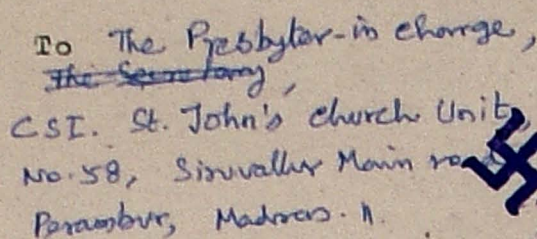 To The Presbyter-in charge,
The Secretary,
CSI. St. John's church Unit,
No.58, Siruvallur Main road
Perambur, Madras. 11.